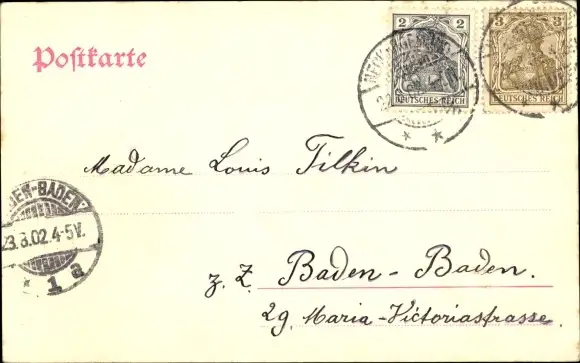 Postkarte
2 2
DEUTSCHES REICH
3 3
DEUTSCHES REICH
Madame Louis Tilkin
BADEN-BADEN
23.8.02.4-5V.
* 1 a
z. Z. Baden-Baden.
29. Maria-Victoriastrasse.